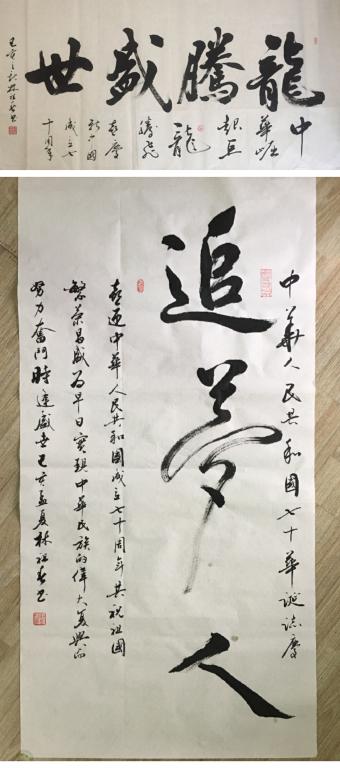 龍騰盛世
中
華崛
起巨
龍
騰飛
喜慶
新中國
成立七
十周年
己亥之秋林祖書
中華人民共和國七十華誕誌慶
追夢人
喜迎中華人民共和國成立七十周年共祝祖國
繁榮昌盛為早日實現中華民族的偉大复興而
努力奮鬥時逢盛世己亥孟夏林祖書